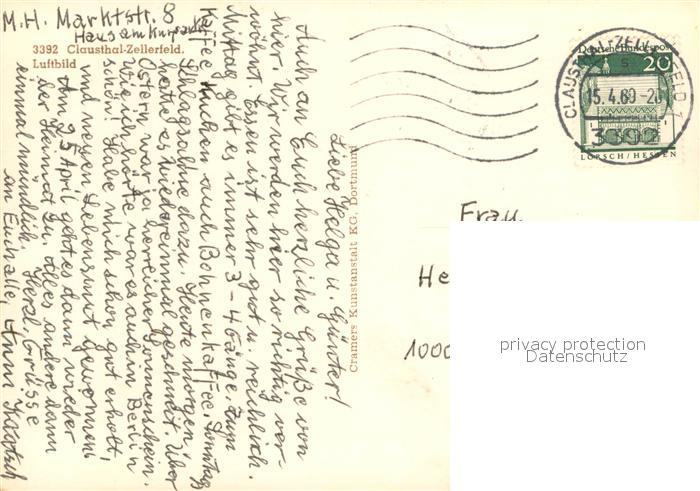 M.H. Marktstr. 8
Haus am Kurpark
3392 Clausthal-Zellerfeld.
Luftbild
Liebe Helga u. Günter!
Auch an Euch herzliche Grüße von
hier. Wir werden hier so richtig ver-
wöhnt. Essen ist sehr gut u. reichlich.
Mittag gibt es immer 3-4 Gänge. Zum
Kaffee Kuchen auch Bohnenkaffee, Sonntag
Schlagsahne dazu. Heute morgen
hatte es wieder einmal geschneit. Über
Ostern war ja herrlicher Sonnenschein.
Wie ich hörte war es auch in Berlin
schön! Habe mich schon gut erholt,
und neuen Lebensmut gewonnen
Am 25 April geht es dann wieder
der Heimat zu. Alles andere dann
einmal mündlich. Herzl. Grüsse
an Euch alle,
Cramers Kunstanstalt KG, Dortmund
Deutsche Bundespost
20
LORSCH/HESSEN
CLAUSTHAL-ZELLERFELD 1
15.4.69-20
3392
Frau
He
1000
privacy protection
Datenschutz